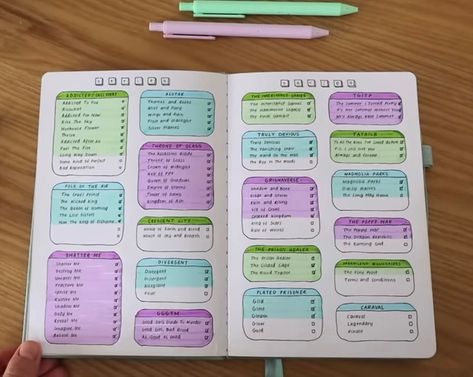 ADDICTED/CALLOWAY
Addicted To You
Ricochet
Addicted For Now
Kiss The Sky
Hothouse Flower
Thrive
Addicted After All
Fuel The Fire
Long Way Down
Some Kind of Perfect
Bad Reputation
FOLK OF THE AIR
The Cruel Prince
The Wicked King
The Queen of Nothing
The Lost Sisters
How the King of Elfhame
SHATTER ME
Shatter Me
Destroy Me
Unravel Me
Fracture Me
Ignite Me
Restore Me
Shadow Me
Defy Me
Reveal Me
Imagine Me
Believe Me
Thorns and
Wings and Ruin
Silver Flames
THRONE OF GLASS
The Assassins Blade
Throne of Glass
Crown of Midnight
Heir of Fire
Queen of Shadows
Empire of Storms
Tower of Dawn
Kingdom of Ash
CRESCENT CITY
House of Earth and Blood
House of Sky and Breath
DIVERGENT
Divergent
Insurgent
Allegiant
Four
GGGTM
Good Girls Guide To Murder
Good Girl, Bad Blood
As Good As Dead
THE INHERITANCE GAMES
The Inheritance Games
The Hawthorne Legacy
The Final Gambit
TRULY DEVIOUS
Truly Devious
The Vanishing Stair
The Hand on the Wall
The Box in the Woods
GRISHAVERSE
Shadow and Bone
Siege and Storm
Ruin and Rising
Six of Crows
Crooked Kingdom
King of Scars
Rule of Wolves
THE PRISON HEALER
The Prison Healer
The Gilded Cage
The Blood Traitor
PLATED PRISONER
Gild
Glint
Gleam
Glow
Gold
TSITP
The Summer I Turned Pretty
It's Not Summer Without You
We'll Always Have Summer
TATBILB
To All the Boys I've Loved Before
P.S. I Still Love You
Always and Forever
MAGNOLIA PARKS
Magnolia Parks
Daisy Haites
The Long Way Home
THE POPPY WAR
The Poppy War
The Dragon Republic
The Burning God
The Fine Print
Terms and Conditions
CARAVAL
Caraval
Legendary
Finale